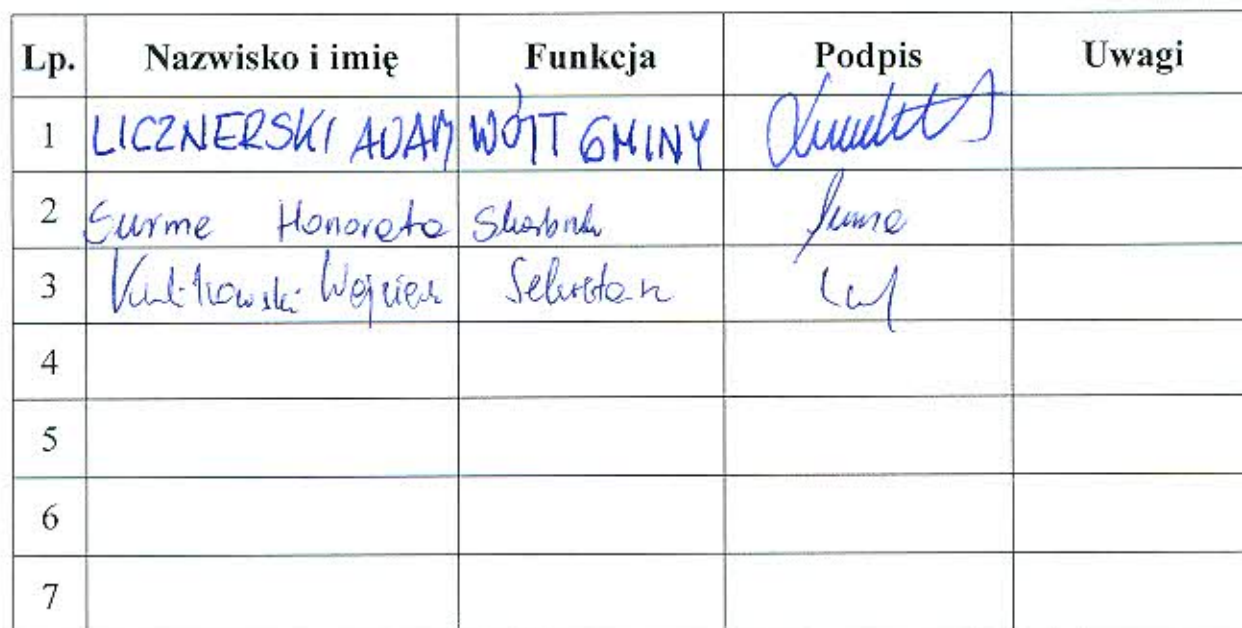 Lp. Nazwisko i imię Funkcja Podpis Uwagi
1 LICZNERSKI ADAM WÓJT GMINY
2 Honorata Skarbnik
3 Wojciech Sekretarz
4
5
6
7